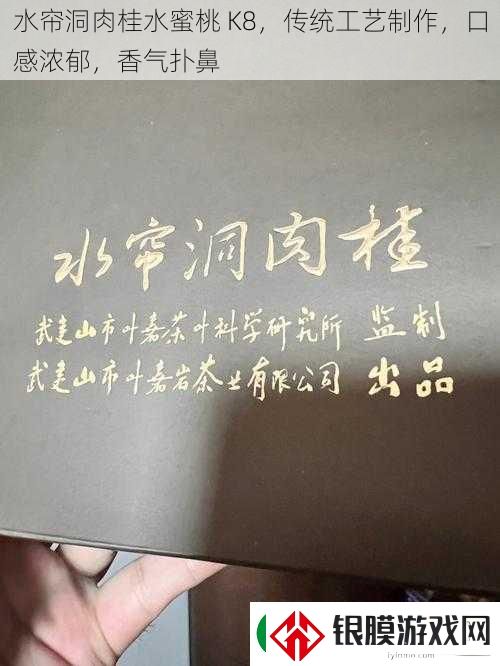 水帘洞肉桂水蜜桃 K8，传统工艺制作，口
感浓郁，香气扑鼻
水帘洞肉桂
武夷山市叶嘉茶叶科学研究所 监制
武夷山市叶嘉岩茶业有限公司 出品
银膜游戏网
iyinmo.com